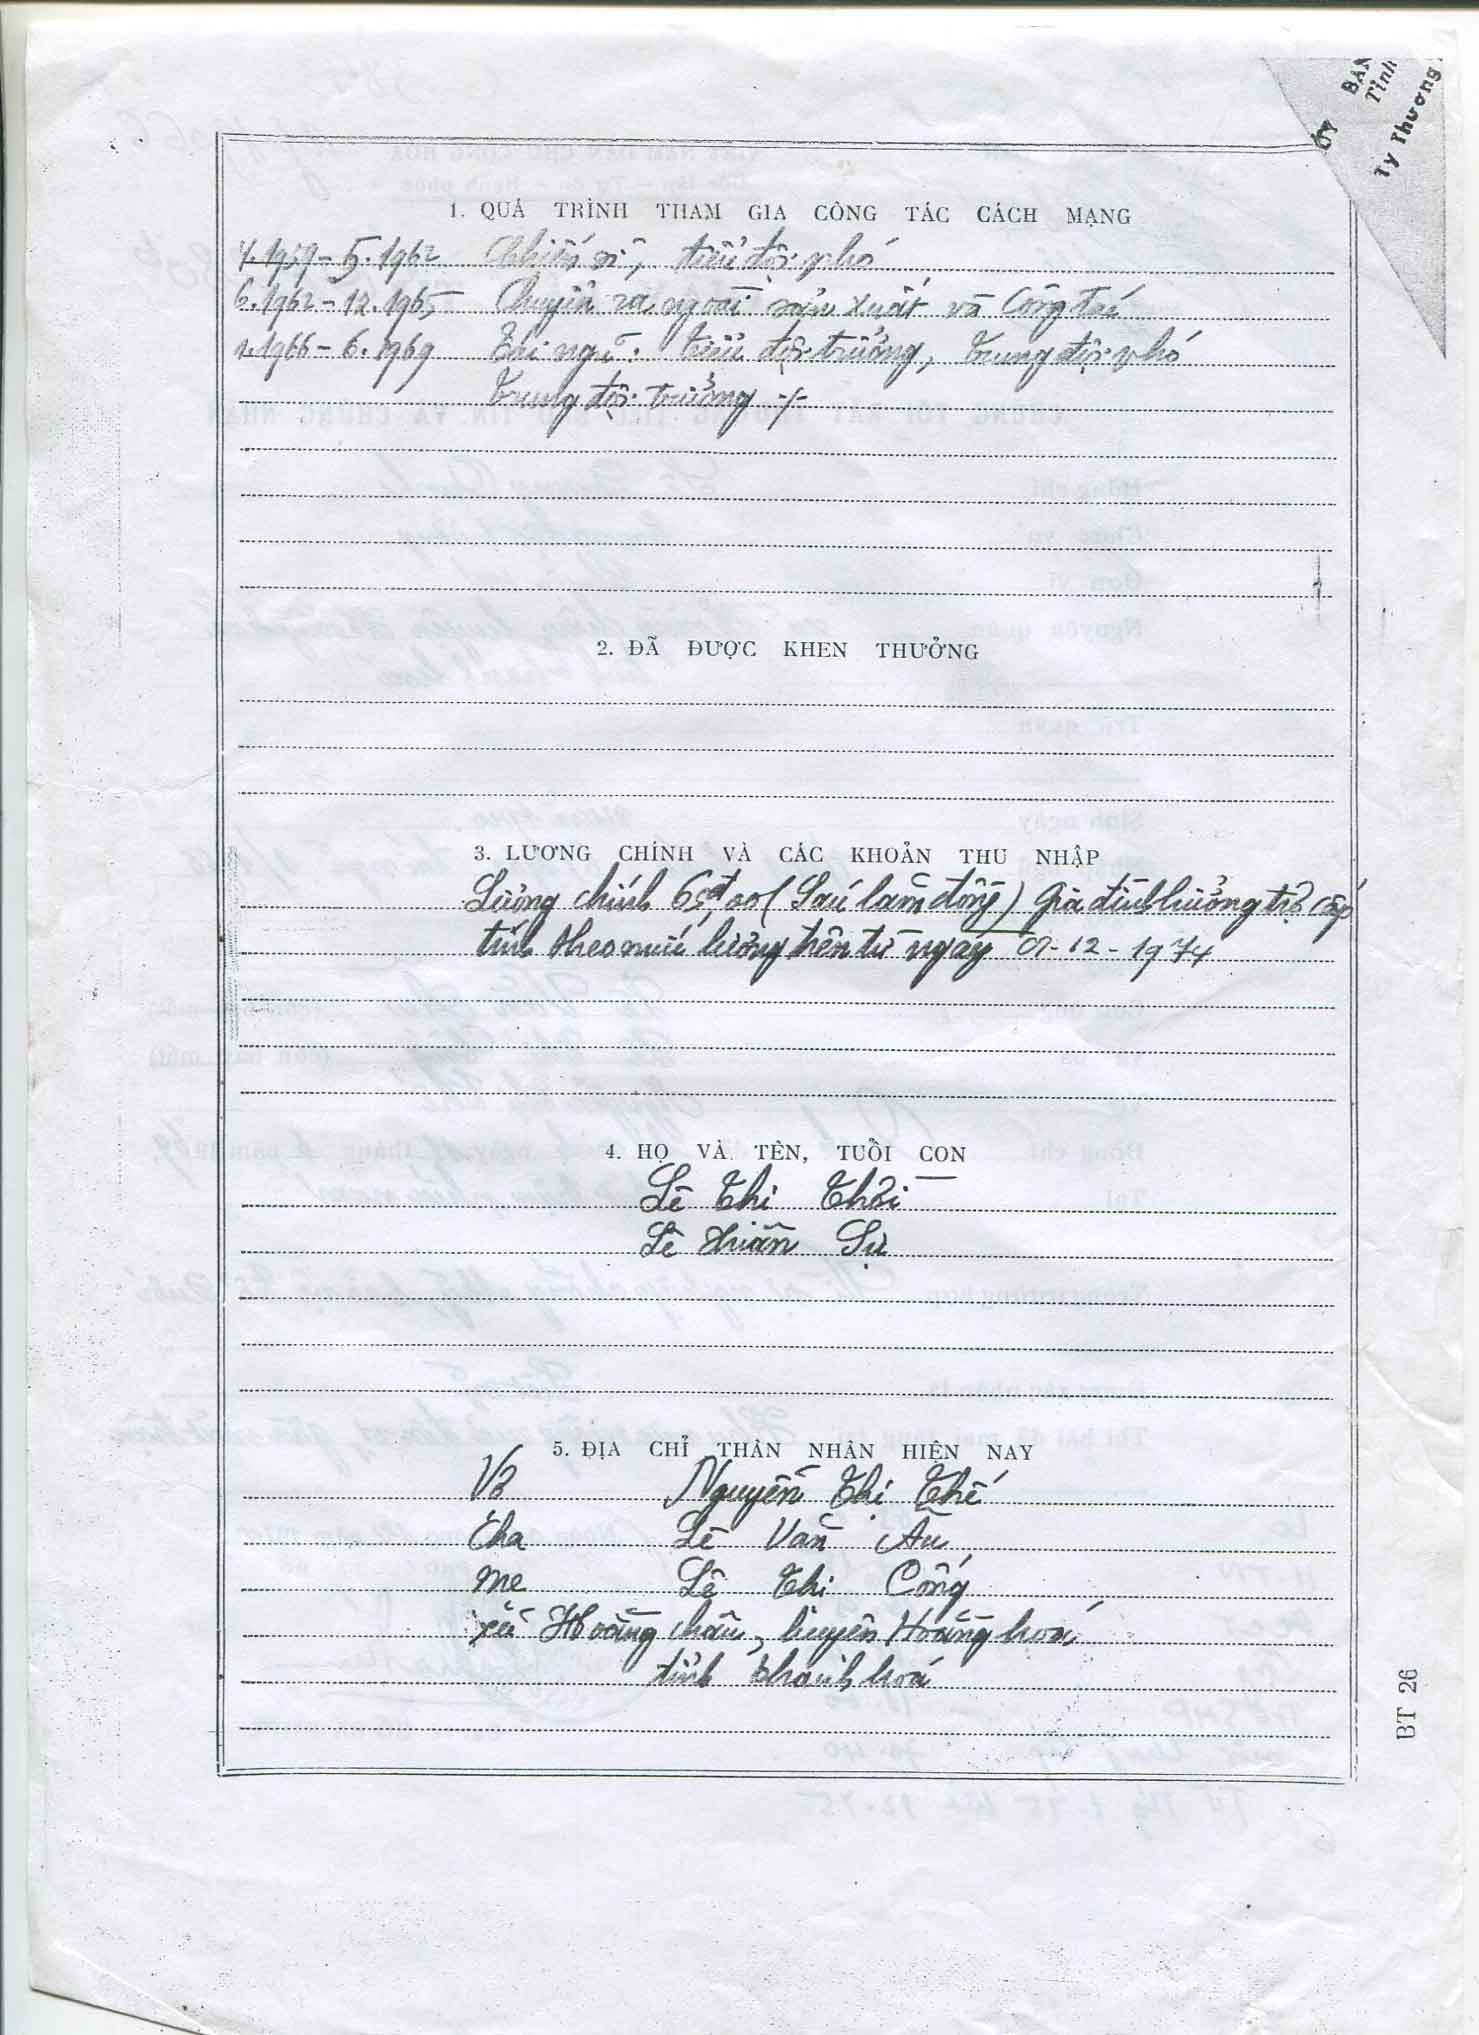 ỦY BAN
Tỉnh
Ty Thương
1. QUÁ TRÌNH THAM GIA CÔNG TÁC CÁCH MẠNG
4.1959 - 5.1962 Chiến sĩ, tiểu đội phó
6.1962 - 12.1965 Chuyển ra ngoài sản xuất và Công tác
1.1966 - 6.1969 Tái ngũ: tiểu đội trưởng, trung đội phó
trung đội trưởng
2. ĐÃ ĐƯỢC KHEN THƯỞNG
3. LƯƠNG CHÍNH VÀ CÁC KHOẢN THU NHẬP
Lương chính 65đ,00 (Sáu lăm đồng) Gia đình hưởng trợ cấp
tính theo mức lương trên từ ngày 01-12-1974
4. HỌ VÀ TÊN, TUỔI CON
Lê Thị Thời
Lê Xuân Sự
5. ĐỊA CHỈ THÂN NHÂN HIỆN NAY
Vợ Nguyễn Thị Thế
Cha Lê Văn
Mẹ Lê Thị Cống
xã Hoằng châu, huyện Hoằng hoá
tỉnh thanh hoá
BT 26